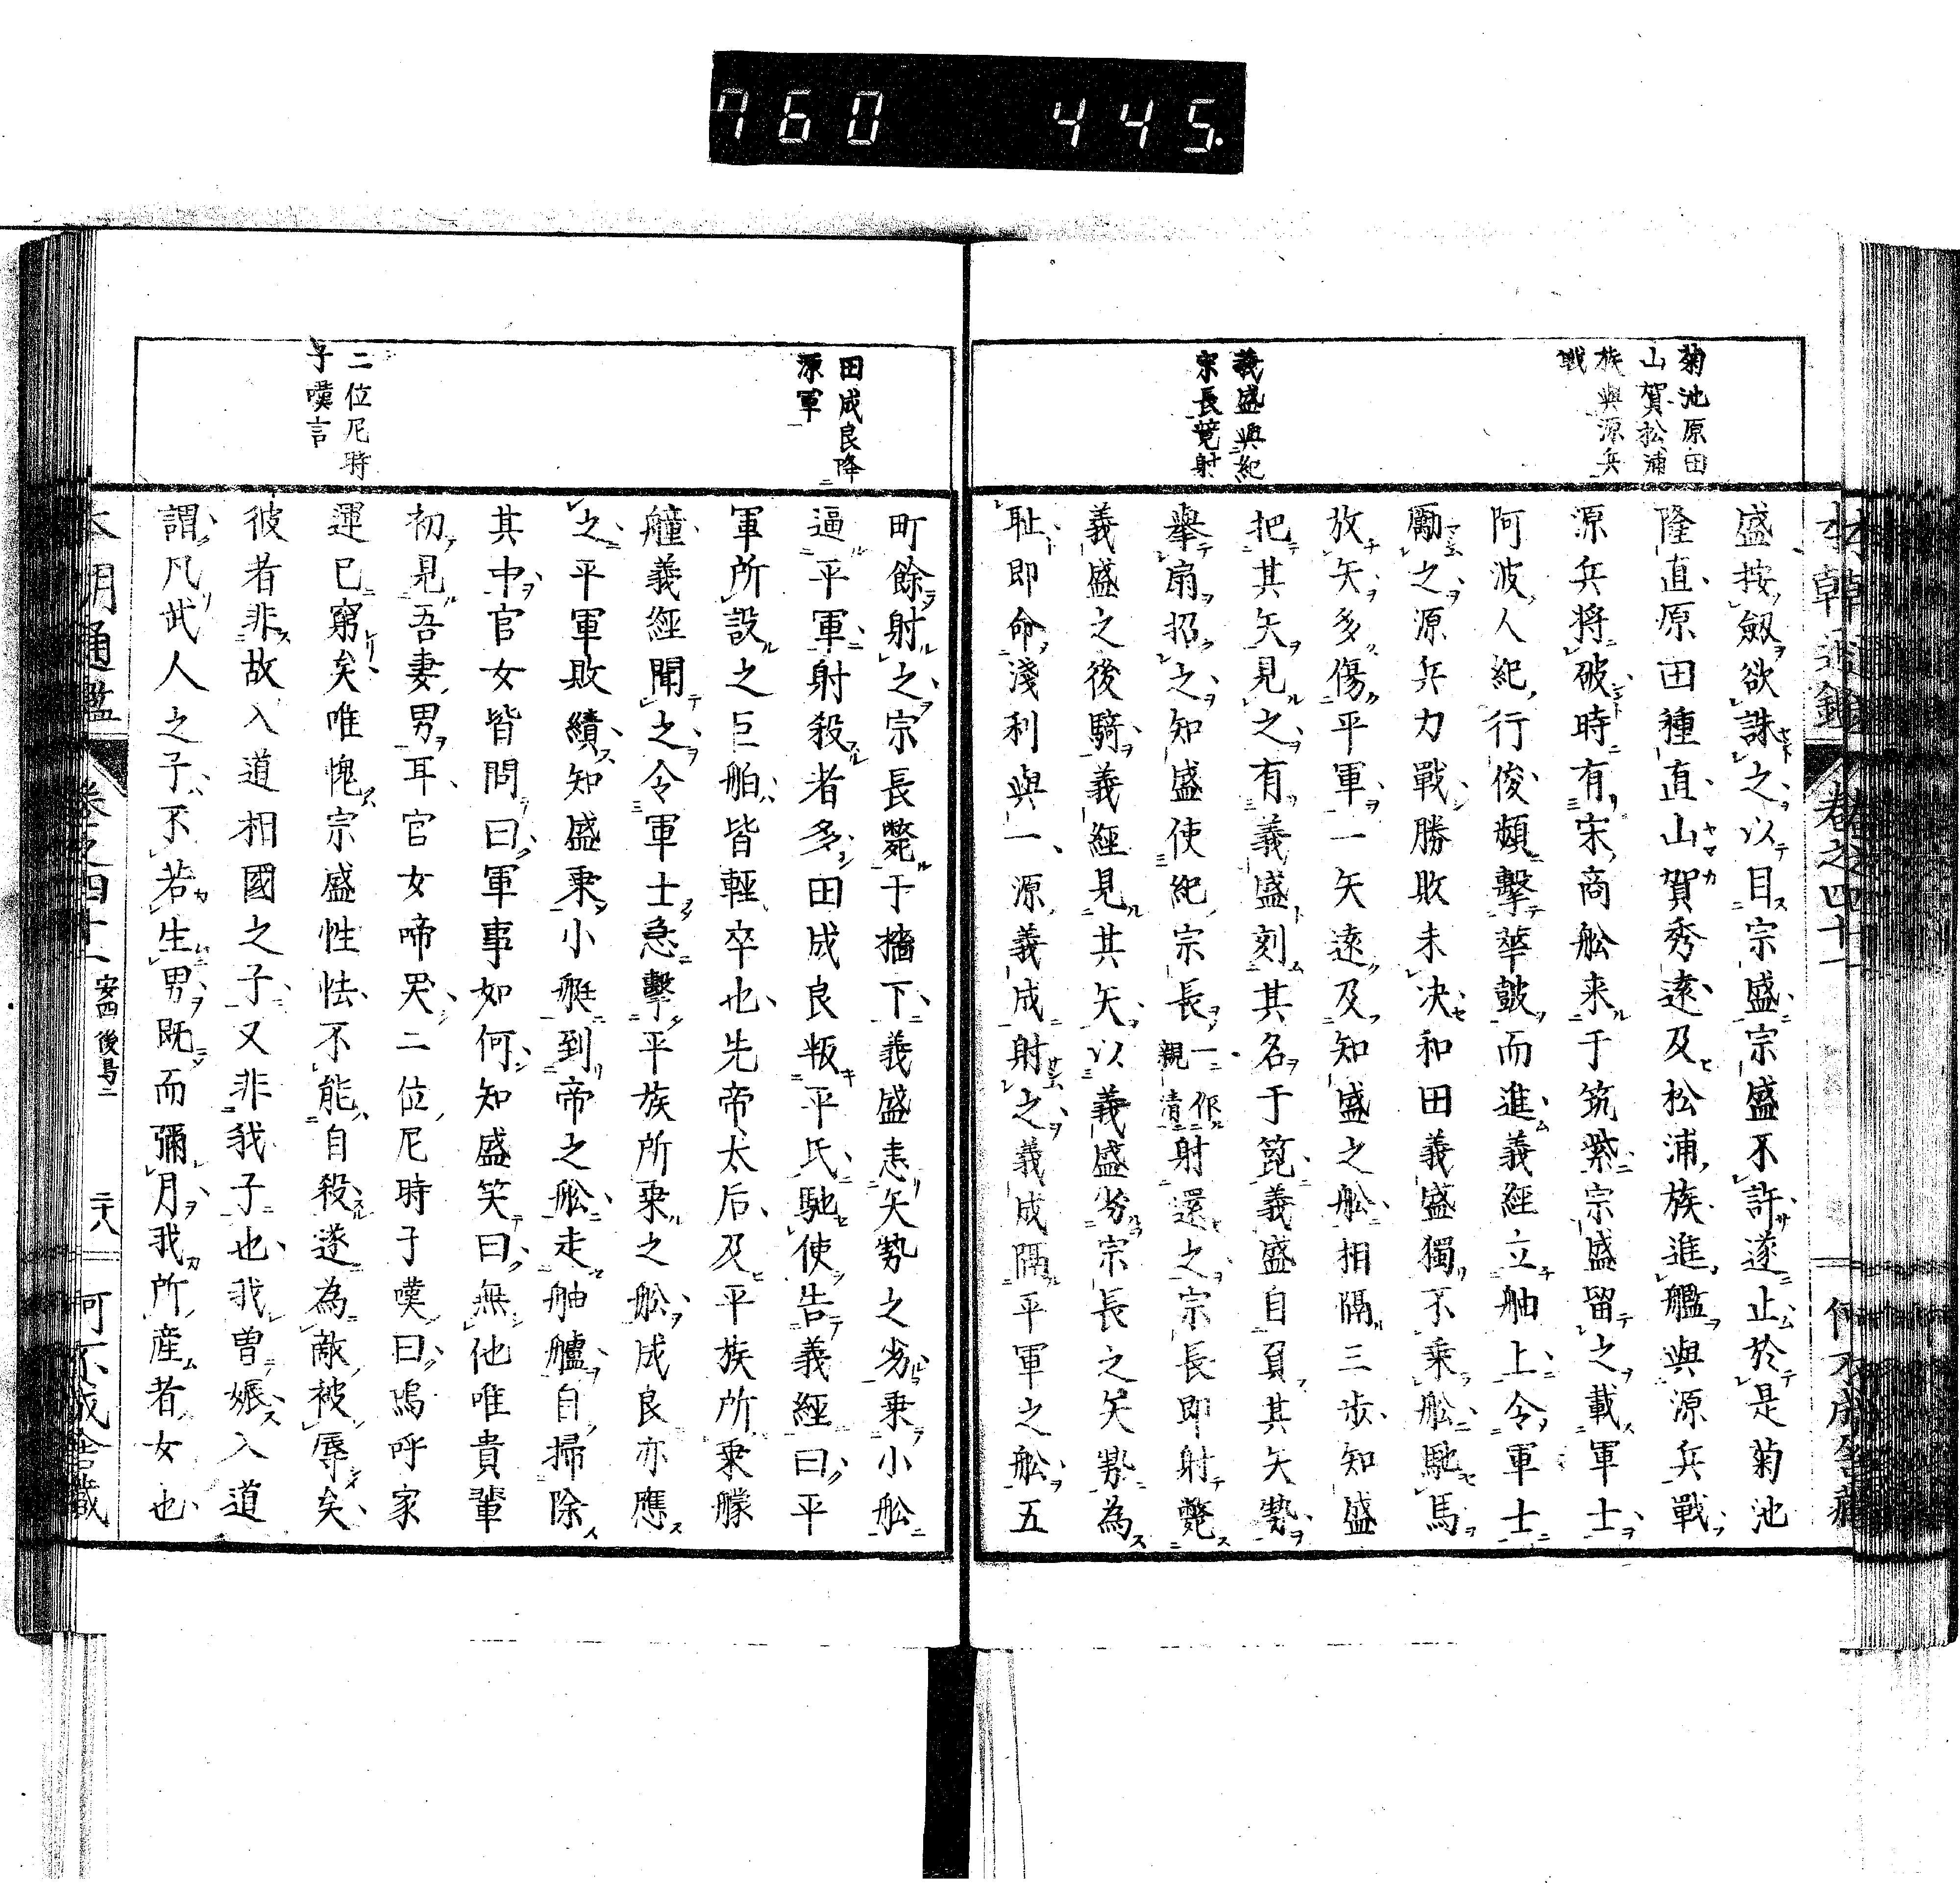 760 445.
菊池原田
山賀松浦
族與源兵
戰
義盛與紀
宗長競射
盛按劔欲誅之以目宗盛宗盛不許遂止於是菊池
隆直原田種直山賀秀遠及松浦族進艦與源兵戰
源兵將破時有宋商舩来于筑紫宗盛留之載軍士
阿波人紀行俊頻擊華皷而進義經立舳上令軍士
勵之源兵力戰勝敗未决和田義盛獨不乗舩馳馬
放矢多傷平軍一矢遠及知盛之舩相隔三步知盛
把其矢見之有義盛刻其名于箆義盛自負其矢勢
舉扇招之知盛使紀宗長一作親清射還之宗長即射斃
義盛之後騎義經見其矢以義盛劣宗長之矢勢為
耻即命淺利與一源義成射之義成隔平軍之舩五
田成良降
源軍
二位尼時
子嘆言
町餘射之宗長斃于檣下義盛恚矢勢之劣乗小舩
逼平軍射殺者多田成良叛平氏馳使告義經曰平
軍所設之巨舶皆輕卒也先帝太后及平族所乗艨
艟義經聞之令軍士急擊平族所乗之舩成良亦應
之平軍敗績知盛乗小艇到帝之舩走舳艫自掃除
其中官女皆問曰軍事如何知盛笑曰無他唯貴輩
初見吾妻男耳官女啼哭二位尼時子嘆曰嗚呼家
運已窮矣唯愧宗盛性怯不能自殺遂為敵被辱矣
彼者非故入道相國之子又非我子也我曽娠入道
謂凡武人之子不若生男既而彌月我所産者女也
本朝通鑑 卷之四十一 安四 後鳥二 三十八